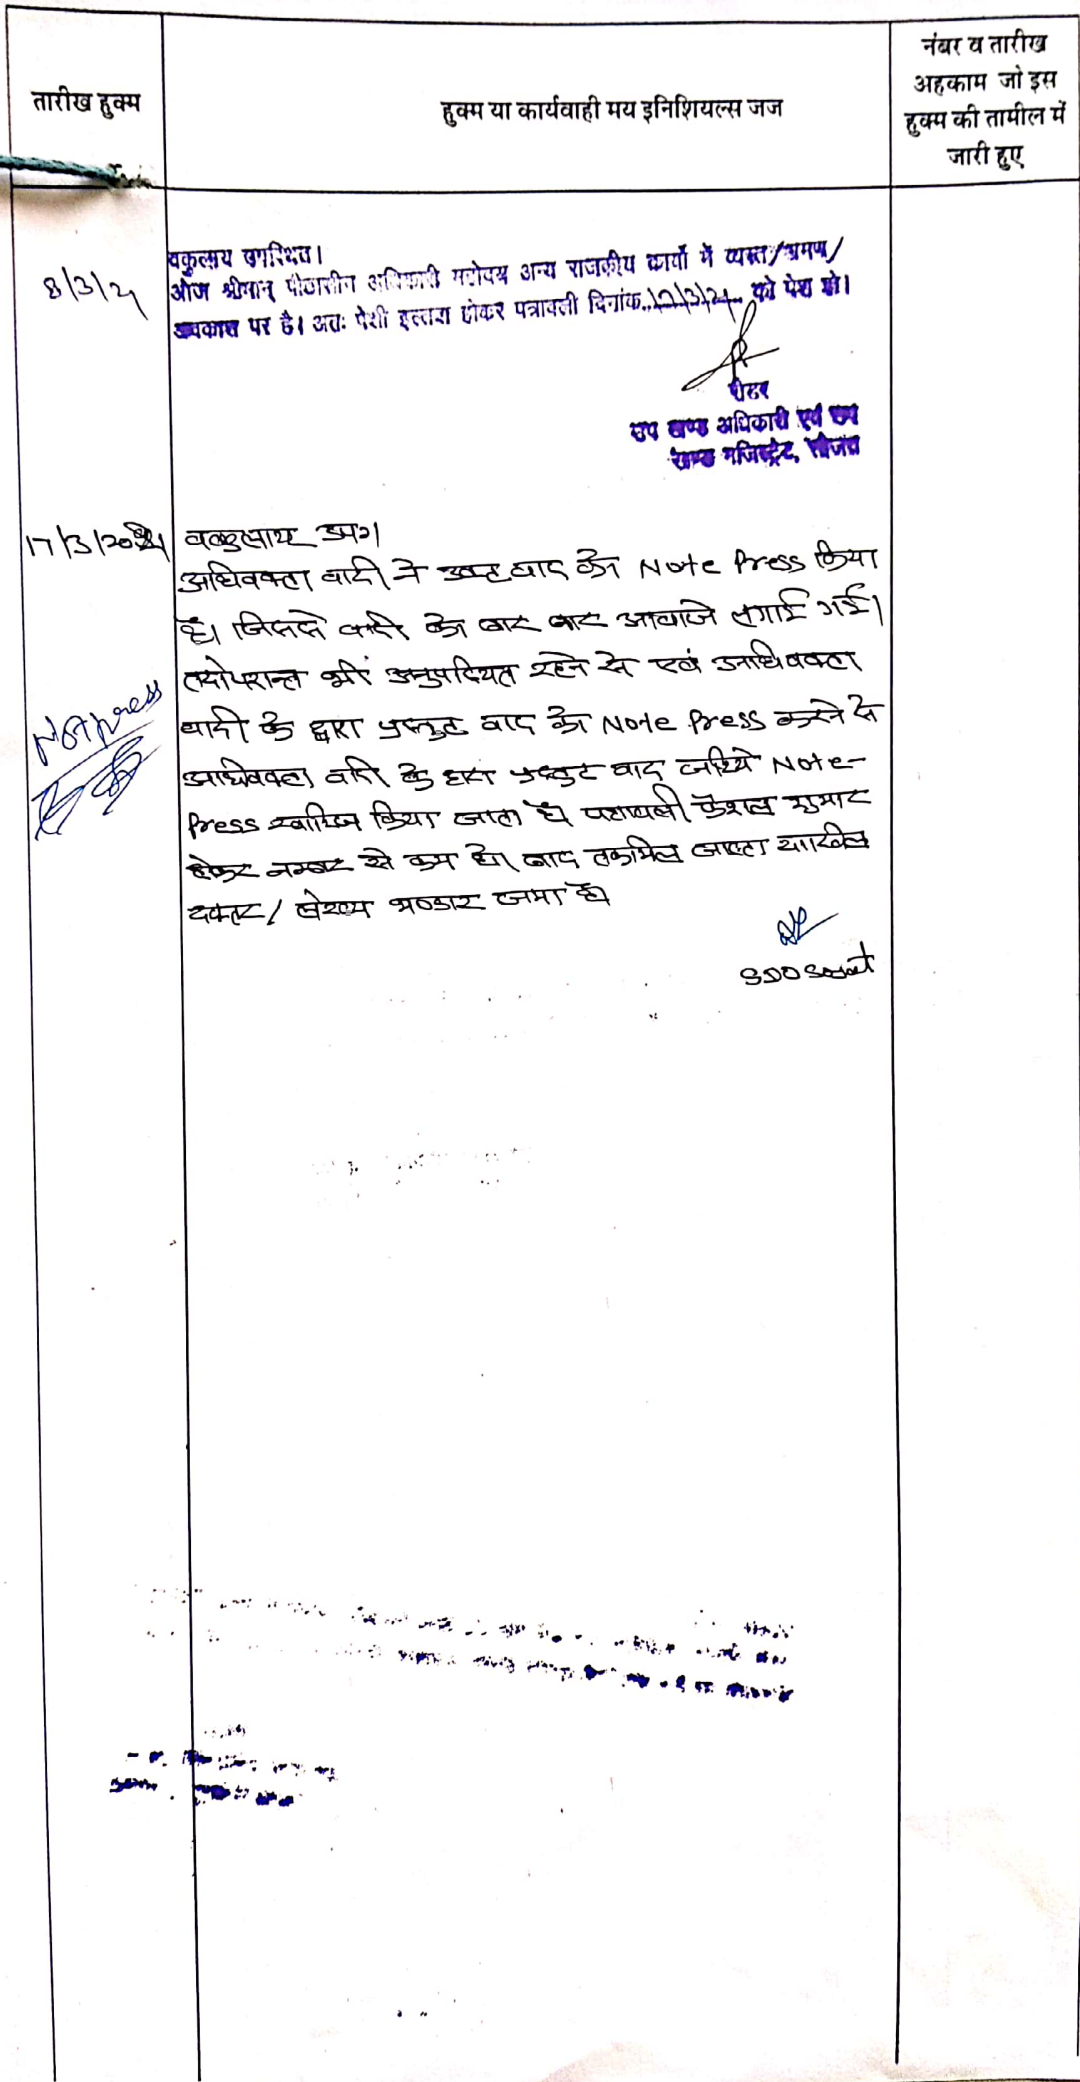 तारीख हुक्म
हुक्म या कार्यवाही मय इनिशियल्स जज
नंबर व तारीख
अहकाम जो इस
हुक्म की तामील में
जारी हुए
8/3/21
वकुलाय उपस्थित।
आज श्रीमान् पीठासीन अधिकारी महोदय अन्य राजकीय कार्यो में व्यस्त/भ्रमण/
अवकाश पर है। अतः पेशी इल्तवा होकर पत्रावली दिनांक 17/3/21 को पेश हो।
रीडर
उप खण्ड अधिकारी एवं उप
खण्ड मजिस्ट्रेट, सोजत
17/3/2021
वकुलाय उप०।
अधिवक्ता वादी ने उक्त वाद को Note Press किया
है। जिससे वादी को बार बार आवाजे लगाई गई।
तदोपरान्त भी अनुपस्थित रहने से एवं अधिवक्ता
वादी के द्वारा प्रस्तुत वाद को Note Press करने से
अधिवक्ता वादी के द्वारा प्रस्तुत वाद जरिये Note-
Press खारिज किया जाता है। पत्रावली फैशल शुमार
होकर नम्बर से कम हो। बाद तकमिल जाब्ता दाखिल
दफ्तर/ लेख्य भण्डार जमा हो।
Not press
SDO Sojat